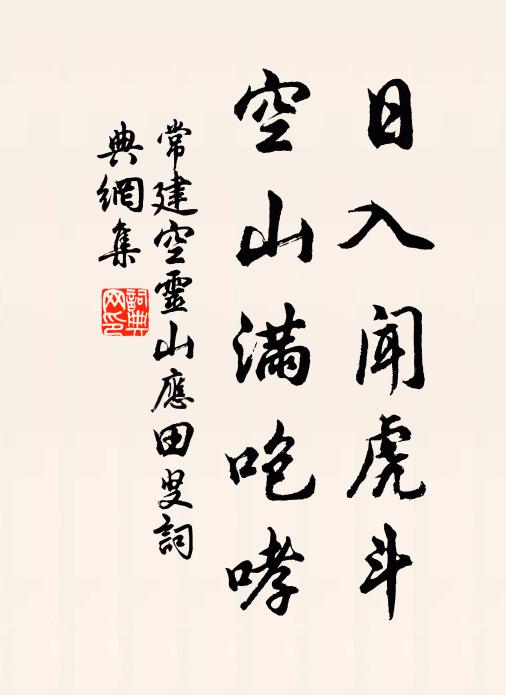 日入闻虎斗
空山满咆哮
常建空靈山應田叟詞
典網集
詞典
网印